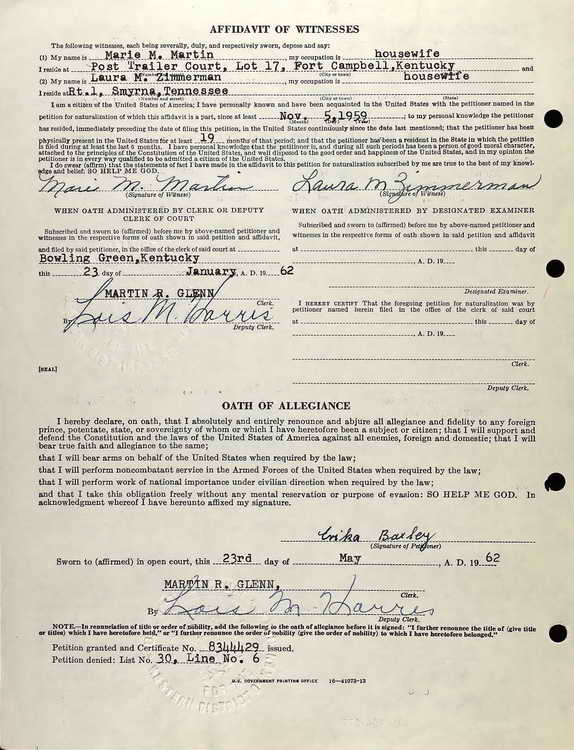 AFFIDAVIT OF WITNESSES
The following witnesses, each being severally, duly, and respectively sworn, depose and say:
(1) My name is Marie M. Martin, my occupation is housewife
I reside at Post Trailer Court, Lot 17, Fort Campbell, Kentucky and
(Number and street) (City or town)
(2) My name is Laura M. Zimmerman, my occupation is housewife
I reside at Rt.1, Smyrna, Tennessee
(Number and street) (City or town) (State)
I am a citizen of the United States of America; I have personally known and have been acquainted in the United States with the petitioner named in the
petition for naturalization of which this affidavit is a part, since at least Nov. 5, 1959; to my personal knowledge the petitioner
has resided, immediately preceding the date of filing this petition, in the United States continuously since the date last mentioned; that the petitioner has been
physically present in the United States for at least 19 months of that period; and that the petitioner has been a resident in the State in which the petition
is filed during at least the last 6 months. I have personal knowledge that the petitioner is, and during all such periods has been a person of good moral character,
attached to the principles of the Constitution of the United States, and well disposed to the good order and happiness of the United States, and in my opinion the
petitioner is in every way qualified to be admitted a citizen of the United States.
I do swear (affirm) that the statements of fact I have made in the affidavit to this petition for naturalization subscribed by me are true to the best of my knowl-
edge and belief: SO HELP ME GOD.
Marie M. Martin Laura M Zimmerman
(Signature of Witness) (Signature of Witness)
WHEN OATH ADMINISTERED BY CLERK OR DEPUTY
CLERK OF COURT
Subscribed and sworn to (affirmed) before me by above-named petitioner and
witnesses in the respective forms of oath shown in said petition and affidavit,
and filed by said petitioner, in the office of the clerk of said court at
Bowling Green, Kentucky
this 23 day of January, A. D. 1962
MARTIN R. GLENN
Clerk.
By Lois M. Harris
Deputy Clerk.
[SEAL]
WHEN OATH ADMINISTERED BY DESIGNATED EXAMINER
Subscribed and sworn to (affirmed) before me by above-named petitioner and
witnesses in the respective forms of oath shown in said petition and affidavit
at this day of
, A. D. 19
Designated Examiner.
I HEREBY CERTIFY That the foregoing petition for naturalization was by
petitioner named herein filed in the office of the clerk of said court
at this day of
, A. D. 19
Clerk.
Deputy Clerk.
OATH OF ALLEGIANCE
I hereby declare, on oath, that I absolutely and entirely renounce and abjure all allegiance and fidelity to any foreign
prince, potentate, state, or sovereignty of whom or which I have heretofore been a subject or citizen; that I will support and
defend the Constitution and the laws of the United States of America against all enemies, foreign and domestic; that I will
bear true faith and allegiance to the same;
that I will bear arms on behalf of the United States when required by the law;
that I will perform noncombatant service in the Armed Forces of the United States when required by the law;
that I will perform work of national importance under civilian direction when required by the law;
and that I take this obligation freely without any mental reservation or purpose of evasion: SO HELP ME GOD. In
acknowledgment whereof I have hereunto affixed my signature.
Erika
(Signature of Petitioner)
Sworn to (affirmed) in open court, this 23rd day of May, A. D. 1962
MARTIN R. GLENN,
Clerk.
By Lois M. Harris
Deputy Clerk.
NOTE.—In renunciation of title or order of nobility, add the following to the oath of allegiance before it is signed: "I further renounce the title of (give title
or titles) which I have heretofore held," or "I further renounce the order of nobility (give the order of nobility) to which I have heretofore belonged."
Petition granted and Certificate No. 8344429 issued.
Petition denied: List No. 30, Line No. 6
U.S. GOVERNMENT PRINTING OFFICE 16—41073-13